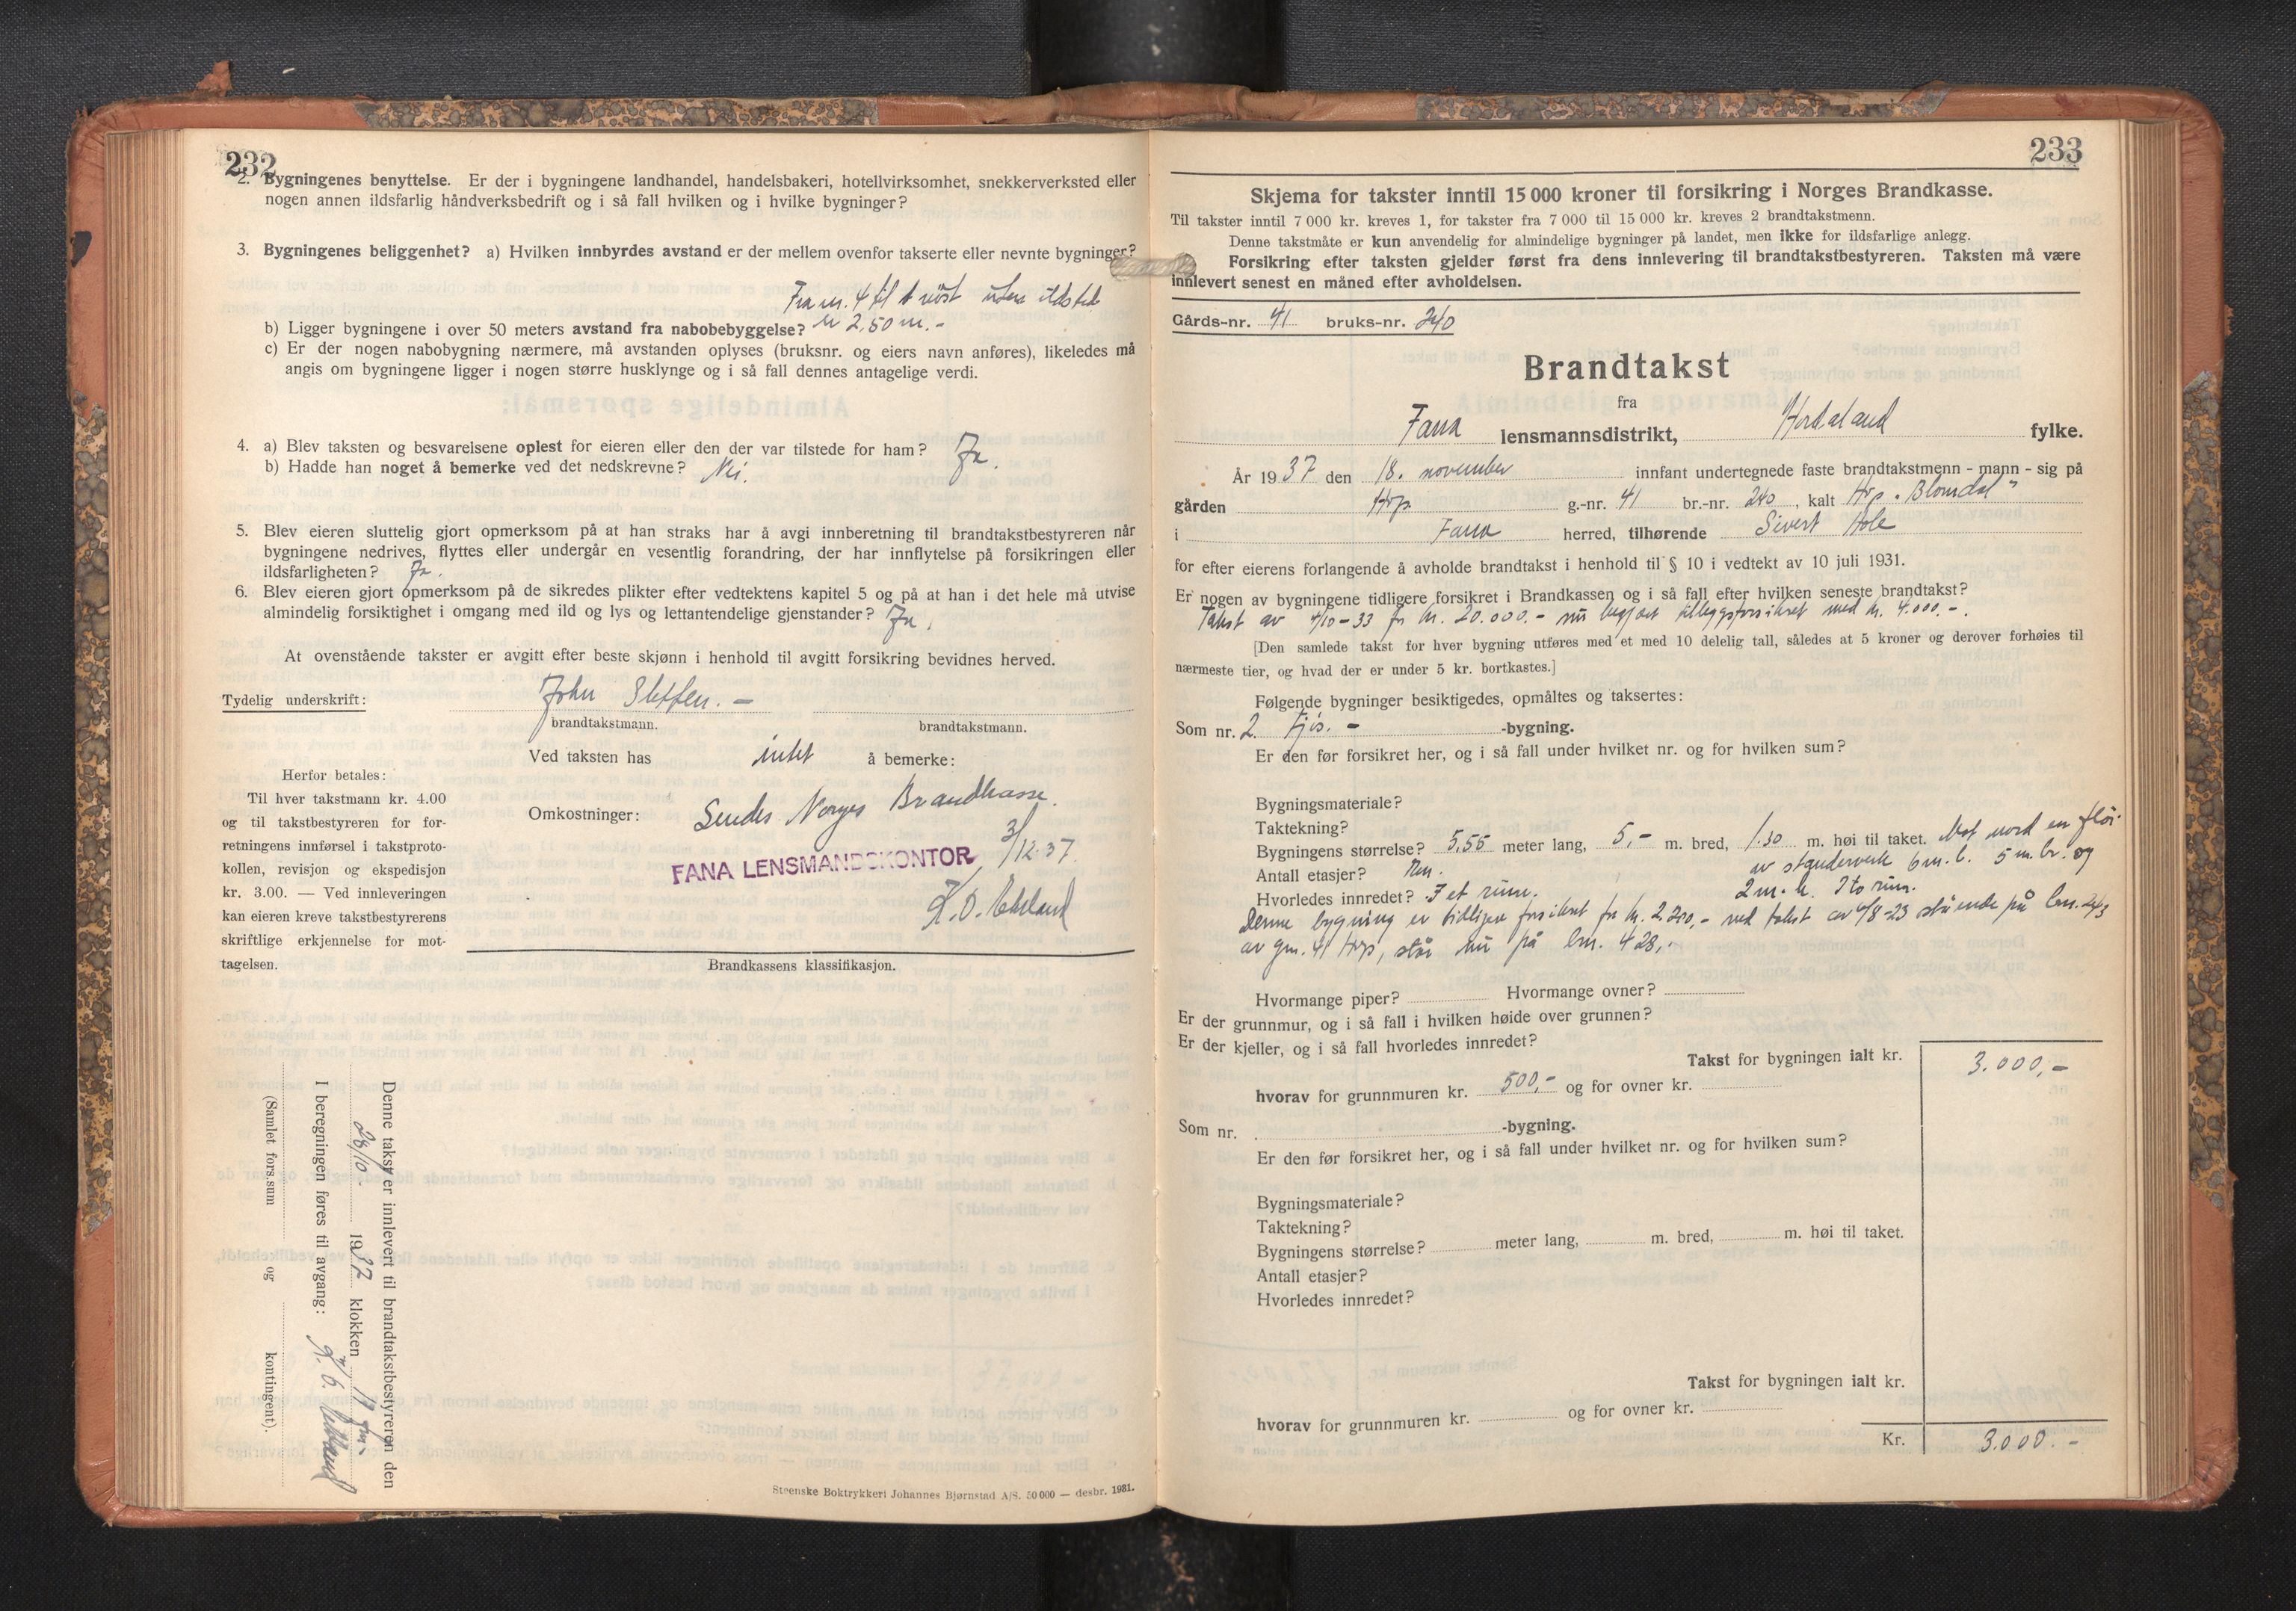 232
2. Bygningenes benyttelse. Er der i bygningene landhandel, handelsbakeri, hotellvirksomhet, snekkerverksted eller
nogen annen ildsfarlig håndverksbedrift og i så fall hvilken og i hvilke bygninger?
3. Bygningenes beliggenhet? a) Hvilken innbyrdes avstand er der mellem ovenfor takserte eller nevnte bygninger?
Fra nr. 4 til 1 uten ildsted
er 2,50 m. -
b) Ligger bygningene i over 50 meters avstand fra nabobebyggelse?
c) Er der nogen nabobygning nærmere, må avstanden oplyses (bruksnr. og eiers navn anføres), likeledes må
angis om bygningene ligger i nogen større husklynge og i så fall dennes antagelige verdi.
4. a) Blev taksten og besvarelsene oplest for eieren eller den der var tilstede for ham? Ja.
b) Hadde han noget å bemerke ved det nedskrevne? Nei.
5. Blev eieren sluttelig gjort opmerksom på at han straks har å avgi innberetning til brandtakstbestyreren når
bygningene nedrives, flyttes eller undergår en vesentlig forandring, der har innflytelse på forsikringen eller
ildsfarligheten? Ja.
6. Blev eieren gjort opmerksom på de sikredes plikter efter vedtektens kapitel 5 og på at han i det hele må utvise
almindelig forsiktighet i omgang med ild og lys og lettantendelige gjenstander? Ja.
At ovenstående takster er avgitt efter beste skjønn i henhold til avgitt forsikring bevidnes herved.
Tydelig underskrift: John Steffen. -
brandtakstmann. brandtakstmann.
Ved taksten has intet å bemerke:
Herfor betales:
Til hver takstmann kr. 4.00
og til takstbestyreren for for-
retningens innførsel i takstproto-
kollen, revisjon og ekspedisjon
kr. 3.00. — Ved innleveringen
kan eieren kreve takstbestyrerens
skriftlige erkjennelse for mot-
tagelsen.
Omkostninger: Sendes Norges Brandkasse.
3/12-37.
FANA LENSMANDSKONTOR
Brandkassens klassifikasjon.
Denne takst er innlevert til brandtakstbestyreren den
28/10. 1937 klokken 17
I beregningen føres til avgang:
(Samlet fors.sum og kontingent).
Steenske Boktrykkeri Johannes Bjørnstad A/S. 50 000 — desbr. 1931.
233
Skjema for takster inntil 15 000 kroner til forsikring i Norges Brandkasse.
Til takster inntil 7 000 kr. kreves 1, for takster fra 7 000 til 15 000 kr. kreves 2 brandtakstmenn.
Denne takstmåte er kun anvendelig for almindelige bygninger på landet, men ikke for ildsfarlige anlegg.
Forsikring efter taksten gjelder først fra dens innlevering til brandtakstbestyreren. Taksten må være
innlevert senest en måned efter avholdelsen.
Gårds-nr. 41 bruks-nr. 240
Brandtakst
fra
Fana lensmannsdistrikt, Hordaland fylke.
År 1937 den 18. november innfant undertegnede faste brandtakstmenn - mann - sig på
gården Hop g.-nr. 41 br.-nr. 240, kalt Hop "Blomdal"
i Fana herred, tilhørende Sivert Hole
for efter eierens forlangende å avholde brandtakst i henhold til § 10 i vedtekt av 10 juli 1931.
Er nogen av bygningene tidligere forsikret i Brandkassen og i så fall efter hvilken seneste brandtakst?
Takst av 4/10-33 for kr. 20.000.- nu begjært tilleggsforsikret med kr. 4.000.-.
[Den samlede takst for hver bygning utføres med et med 10 delelig tall, således at 5 kroner og derover forhøies til
nærmeste tier, og hvad der er under 5 kr. bortkastes.]
Følgende bygninger besiktigedes, opmåltes og taksertes:
Som nr. 2 Fjøs. - -bygning.
Er den før forsikret her, og i så fall under hvilket nr. og for hvilken sum?
Bygningsmateriale?
Taktekning?
Bygningens størrelse? 5,55 meter lang, 5,- m. bred, 1.30 m. høi til taket. Mot nord en fløi
Antall etasjer? av standerverk 6 m. l. 5 m. br. og
Hvorledes innredet? I et rum. 2 m. h. I to rum.
Denne bygning er tidligere forsikret for kr. 2.200,- ved takst av 6/8-23 stående på bn. 
av gn. 41 Hop, står nu på bn. 428,-
Hvormange piper? Hvormange ovner?
Er der grunnmur, og i så fall i hvilken høide over grunnen?
Er der kjeller, og i så fall hvorledes innredet?
Takst for bygningen ialt kr. 3.000,-
hvorav for grunnmuren kr. 500,- og for ovner kr.
Som nr. -bygning.
Er den før forsikret her, og i så fall under hvilket nr. og for hvilken sum?
Bygningsmateriale?
Taktekning?
Bygningens størrelse? meter lang, m. bred, m. høi til taket.
Antall etasjer?
Hvorledes innredet?
Takst for bygningen ialt kr.
hvorav for grunnmuren kr. og for ovner kr.
Kr. 3.000.-